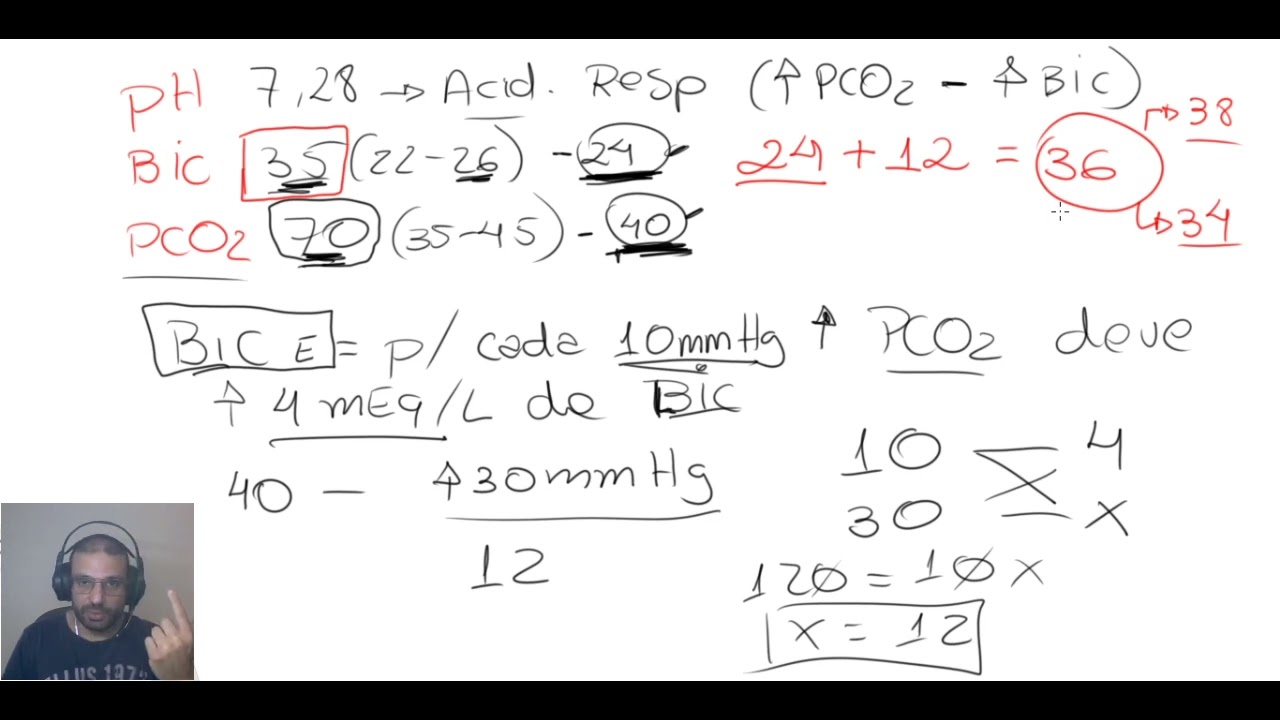 pH 7,28 → Acid. Resp (↑PCO2 - ↑BIC)
BIC 35 (22-26) - 24 24 + 12 = 36 → 38
→ 34
PCO2 70 (35-45) - 40
BIC E = p/ cada 10mmHg ↑ PCO2 deve
↑ 4 mEq/L de BIC
40 - ↑30mmHg
12
10 4
30 x
120 = 10 x
x = 12